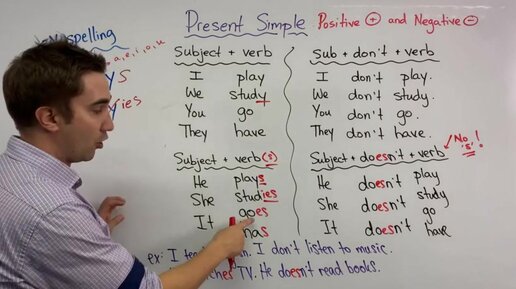 Present Simple Positive + and Negative -
spelling
a, e, i, o, u
ys
ies
Subject + verb
I play
We study
You go
They have
Subject + verb(s)
He plays
She studies
It goes
has
Sub + don't + verb
I don't play.
We don't study.
You don't go.
They don't have.
Subject + doesn't + verb
No 's'!
He doesn't play
She doesn't study
It doesn't go
doesn't have
ex: I I don't listen to music.
TV. He doesn't read books.